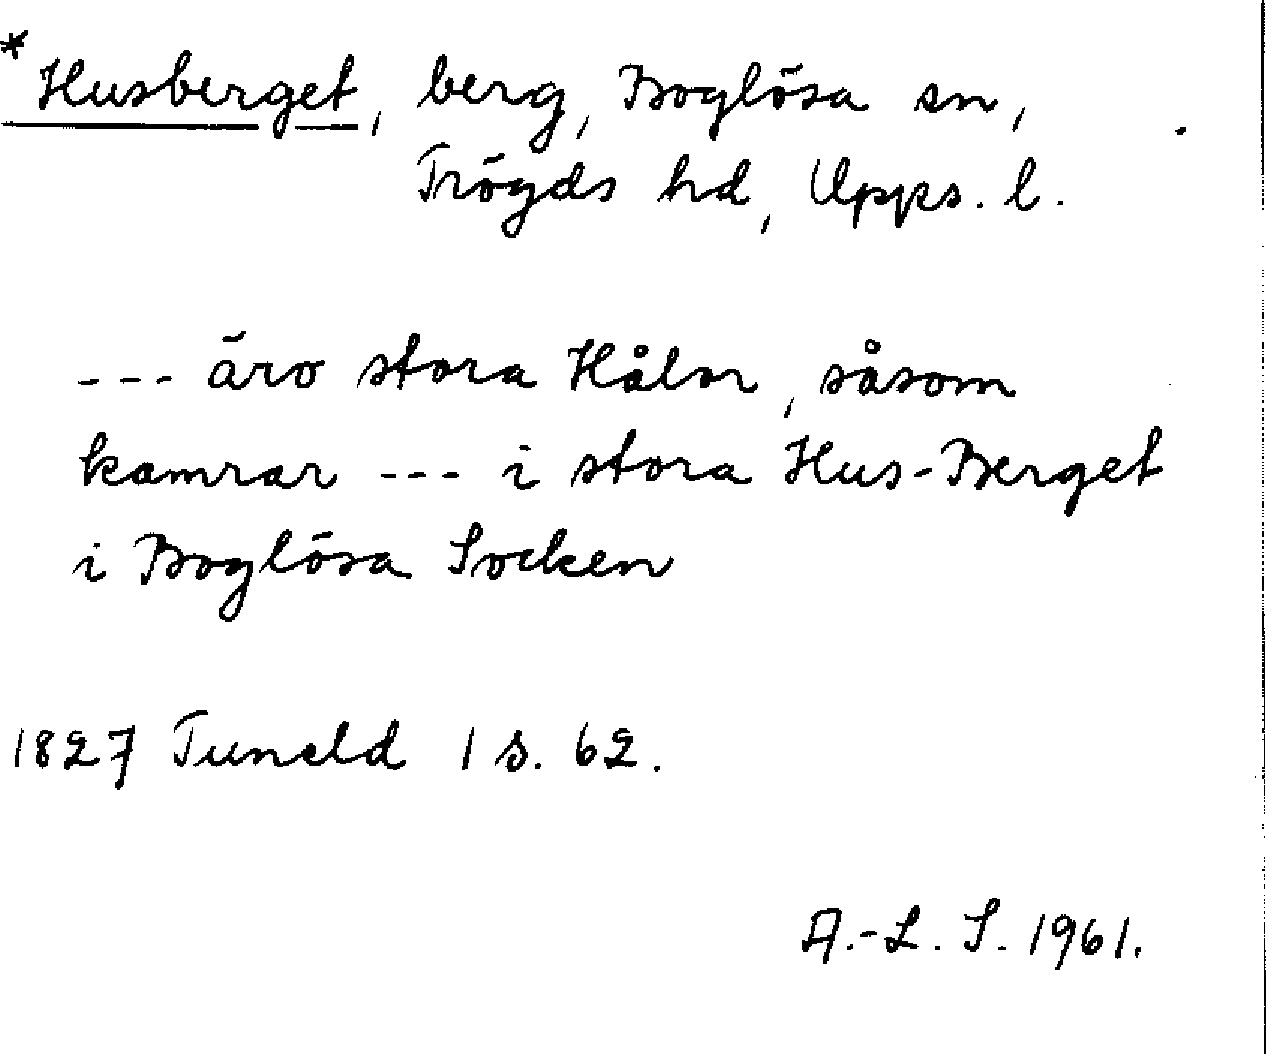 *Husberget, berg, Boglösa sn,
Trögds hd, Upps. l.
--- äro stora Hålor, såsom
kamrar --- i stora Hus-Berget
i Boglösa Socken
1827 Tuneld 1 s. 62.
A.-L. S. 1961.